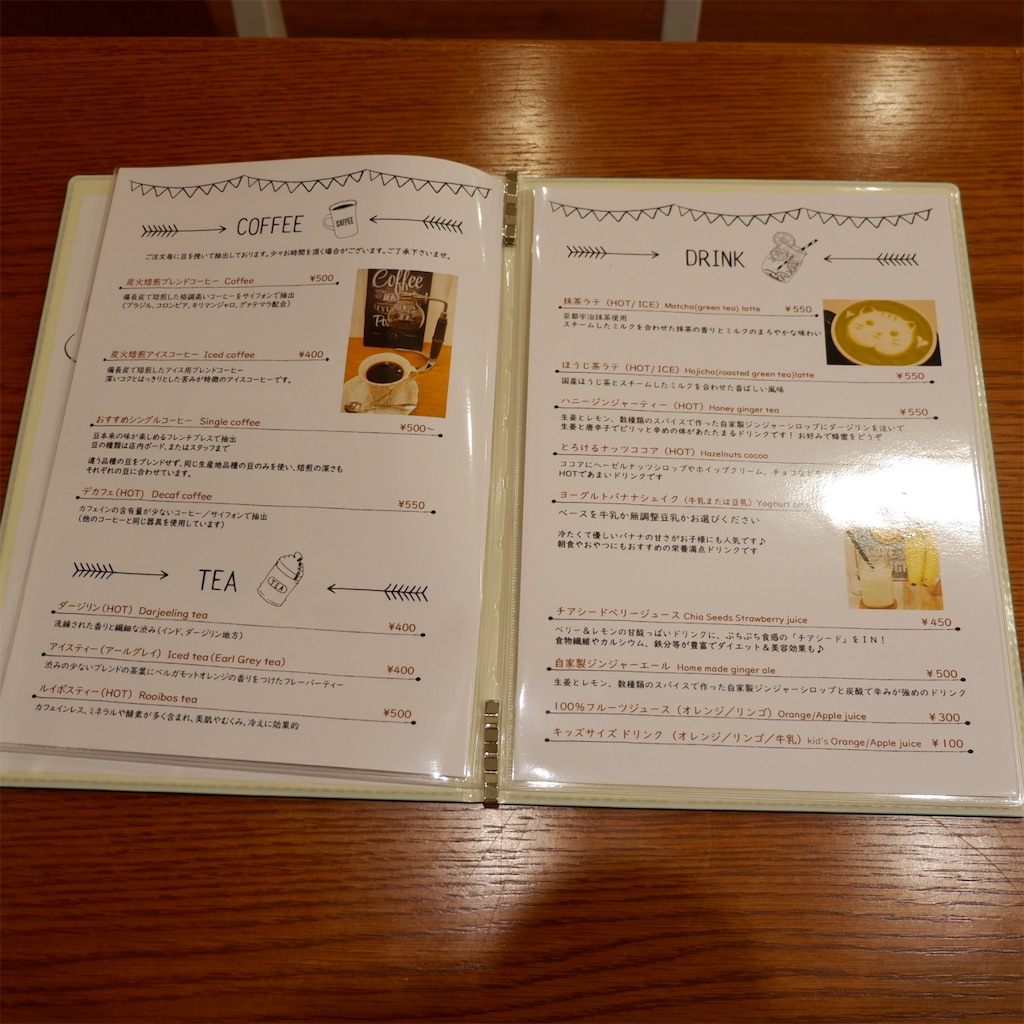 COFFEE
COFFEE
ご注文毎に豆を挽いて抽出しております。少々お時間を頂く場合がございます。ご了承下さいませ。
炭火焙煎ブレンドコーヒー Coffee ¥500
備長炭で焙煎した格調高いコーヒーをサイフォンで抽出
(ブラジル、コロンビア、キリマンジャロ、グァテマラ配合)
Coffee
炭火焙煎アイスコーヒー Iced coffee ¥400
備長炭で焙煎したアイス用ブレンドコーヒー
深いコクとはっきりとした苦みが特徴のアイスコーヒーです。
おすすめシングルコーヒー Single coffee ¥500~
豆本来の味が楽しめるフレンチプレスで抽出
豆の種類は店内ボード、またはスタッフまで
違う品種の豆をブレンドせず、同じ生産地品種の豆のみを使い、焙煎の深さも
それぞれの豆に合わせています。
デカフェ(HOT) Decaf coffee ¥550
カフェインの含有量が少ないコーヒー/サイフォンで抽出
(他のコーヒーと同じ器具を使用しています)
TEA
TEA
ダージリン(HOT) Darjeeling tea ¥400
洗練された香りと繊細な渋み(インド、ダージリン地方)
アイスティー(アールグレイ) Iced tea(Earl Grey tea) ¥400
渋みの少ないブレンドの茶葉にベルガモットオレンジの香りをつけたフレーバーティー
ルイボスティー(HOT) Rooibos tea ¥500
カフェインレス、ミネラルや酵素が多く含まれ、美肌やむくみ、冷えに効果的
DRINK
抹茶ラテ(HOT/ICE) Matcha(green tea) latte ¥550
京都宇治抹茶使用
スチームしたミルクを合わせた抹茶の香りとミルクのまろやかな味わい
ほうじ茶ラテ(HOT/ICE) Hojicha(roasted green tea)latte ¥550
国産ほうじ茶とスチームしたミルクを合わせた香ばしい風味
ハニージンジャーティー(HOT) Honey ginger tea ¥550
生姜とレモン、数種類のスパイスで作った自家製ジンジャーシロップにダージリンを注いで
生姜と唐辛子でピリッと辛めの体があたたまるドリンクです! お好みで蜂蜜をどうぞ
とろけるナッツココア(HOT) Hazelnuts cocoa
ココアにヘーゼルナッツシロップやホイップクリーム、チョコなど
HOTであまいドリンクです
ヨーグルトバナナシェイク(牛乳または豆乳) Yoghurt
ベースを牛乳か無調整豆乳かお選びください
冷たくて優しいバナナの甘さがお子様にも人気です♪
朝食やおやつにもおすすめの栄養満点ドリンクです
チアシードベリージュース Chia Seeds Strawberry juice ¥450
ベリー&レモンの甘酸っぱいドリンクに、ぷちぷち食感の「チアシード」をIN!
食物繊維やカルシウム、鉄分等が豊富でダイエット&美容効果も♪
自家製ジンジャーエール Home made ginger ale ¥500
生姜とレモン、数種類のスパイスで作った自家製ジンジャーシロップと炭酸で辛みが強めのドリンク
100%フルーツジュース(オレンジ/リンゴ) Orange/Apple juice ¥300
キッズサイズ ドリンク (オレンジ/リンゴ/牛乳) kid's Orange/Apple juice ¥100